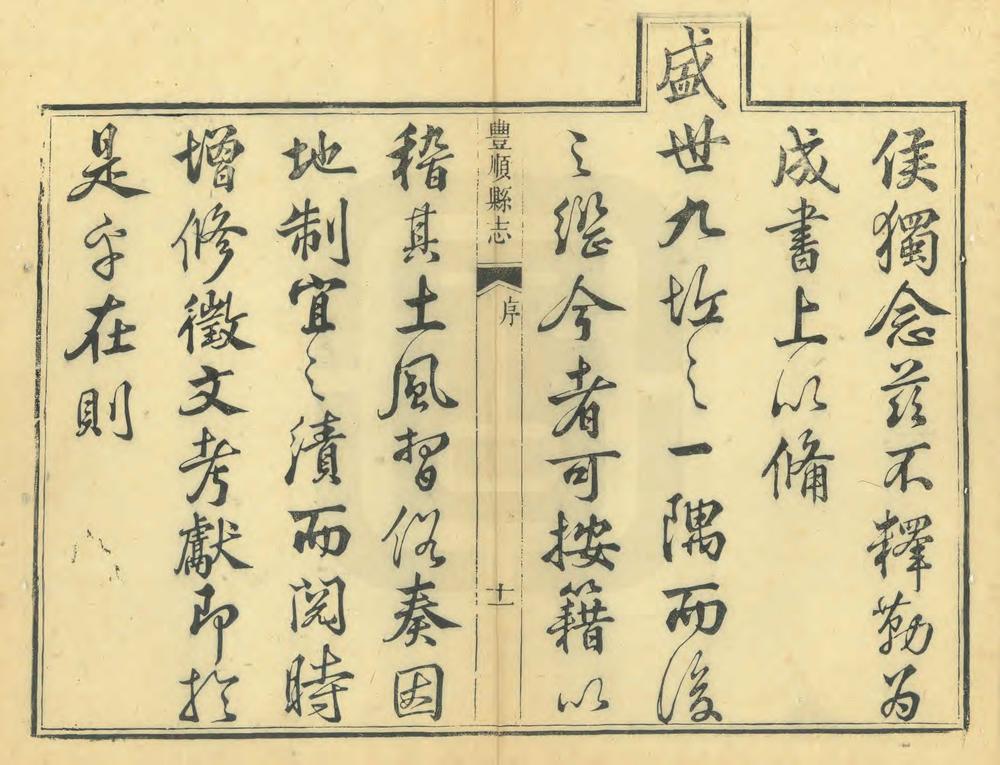 侯獨念茲不釋勒為
成書上以備
盛世九垓之一隅而後
之繼今者可按籍以
豐順縣志
序
十一
稽其土風習俗奏因
地制宜之績而閱時
增修徵文考獻即於
是乎在則